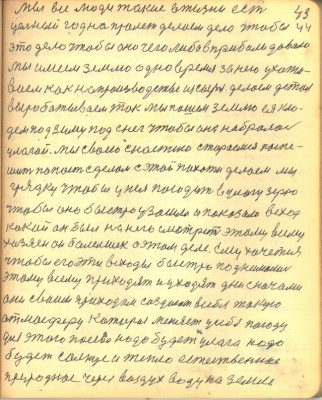 Мы все люди такие в жизни ест 43
целый год на пролет делаем дело чтобы 44
это дело чтобы оно чего либо в прибыл давало
Мы имеем землю одно время за нею ухажи-
ваем как на производстве из сырья делаем детал
вырабатываем так мы пашем землю ея кла-
дем под зиму под снег чтобы она набралас
улагой. Мы своей снастию стараемся поспе-
шит попаст сделат с этой пахоты делаем мы
грядку чтобы у нея посадит в улагу зерно
чтобы оно быстро узошло и показало всход
какой он был на него смотрет этому всему
хозяен он болельщик в этом деле. Ему хочетия
чтобы его эти всходы быстро поднималис
этому всему приходят и уходят дни сначами
они своим приходам создают в себя такую
атмосферу которая меняет у себя погоду
для этого посева надо будет улага надо
будет солнце и тепло естественное
природное через воздух воду на земле